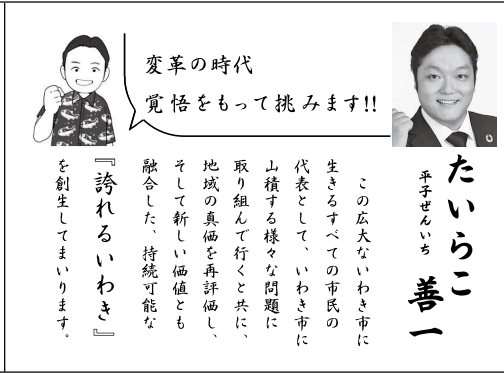 たいらこ 善一
平子ぜんいち
変革の時代
覚悟をもって挑みます!!
この広大ないわき市に
生きるすべての市民の
代表として、いわき市に
山積する様々な問題に
取り組んで行くと共に、
地域の真価を再評価し、
そして新しい価値とも
融合した、持続可能な
『誇れるいわき』
を創生してまいります。